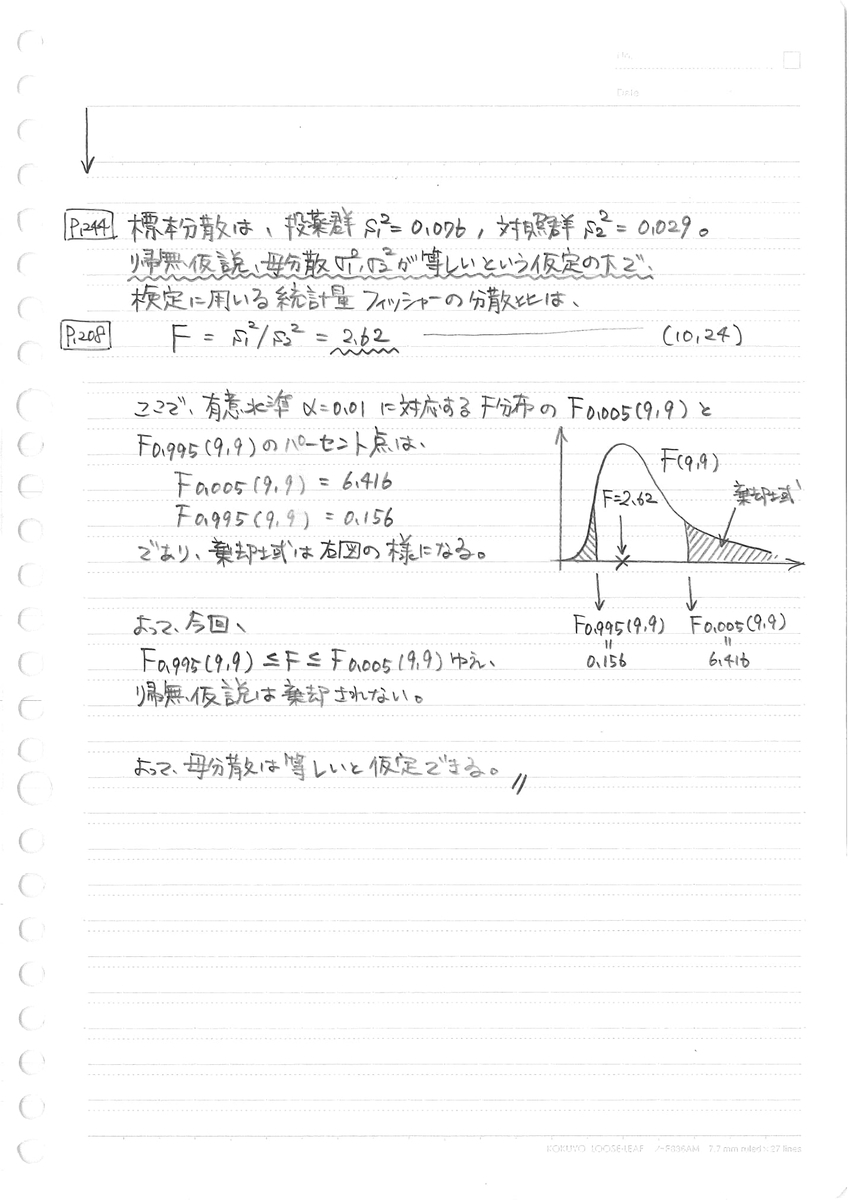 No.
Date
P.244 標本分散は、投薬群 s₁² = 0.076, 対照群 s₂² = 0.029。
帰無仮説、母分散σ₁²,σ₂²が等しいという仮定の下で、
検定に用いる統計量 フィッシャーの分散比は、
P.208 F = s₁²/s₂² = 2.62 (10.24)
ここで、有意水準 α=0.01 に対応する F分布の F0.005(9,9) と
F0.995(9,9) のパーセント点は、
F0.005(9,9) = 6.416
F0.995(9,9) = 0.156
であり、棄却域は右図の様になる。
F(9,9)
F=2.62
棄却域
F0.995(9,9) F0.005(9,9)
〃 〃
0.156 6.416
よって、今回、
F0.995(9,9) ≤ F ≤ F0.005(9,9) ゆえ、
帰無仮説は棄却されない。
よって、母分散は等しいと仮定できる。//
KOKUYO LOOSE-LEAF ノ-F836AM 7.7 mm ruled × 27 lines